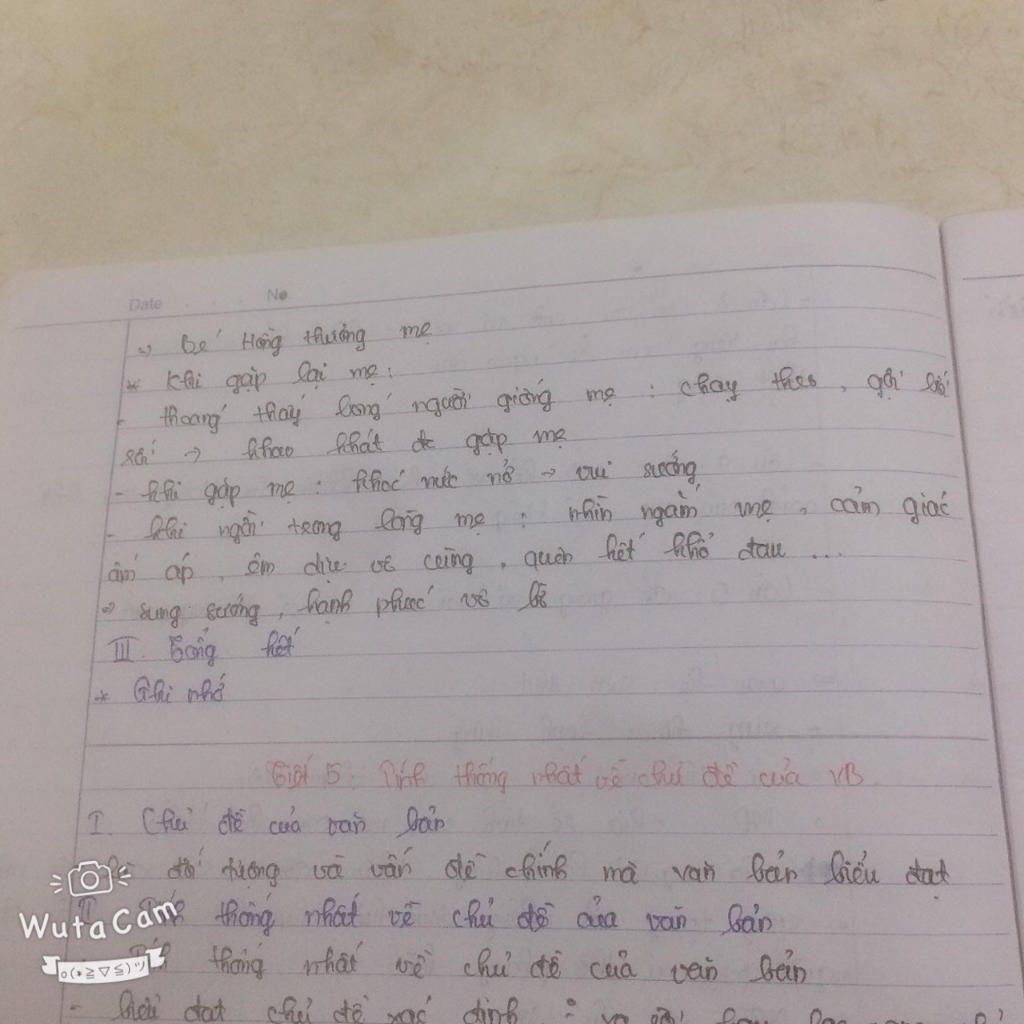 Date No
→ bé Hồng thương mẹ
* Khi gặp lại mẹ:
- thoáng thấy bóng người giống mẹ : chạy theo, gọi bối
rối → khao khát đc gặp mẹ
- khi gặp mẹ : khóc nức nở → vui sướng
- khi ngồi trong lòng mẹ : nhìn ngắm mẹ, cảm giác
ấm áp, êm dịu vô cùng, quên hết khổ đau ...
→ sung sướng, hạnh phúc vô bờ
III. Tổng kết
* Ghi nhớ
Tiết 5 : Tính thống nhất về chủ đề của VB.
I. Chủ đề của văn bản
đối tượng và vấn đề chính mà văn bản biểu đạt
Tính thống nhất về chủ đề của văn bản
Tính thống nhất về chủ đề của văn bản
- biểu đạt chủ đề xác định
WutaCam
o(*≧▽≦)ツ